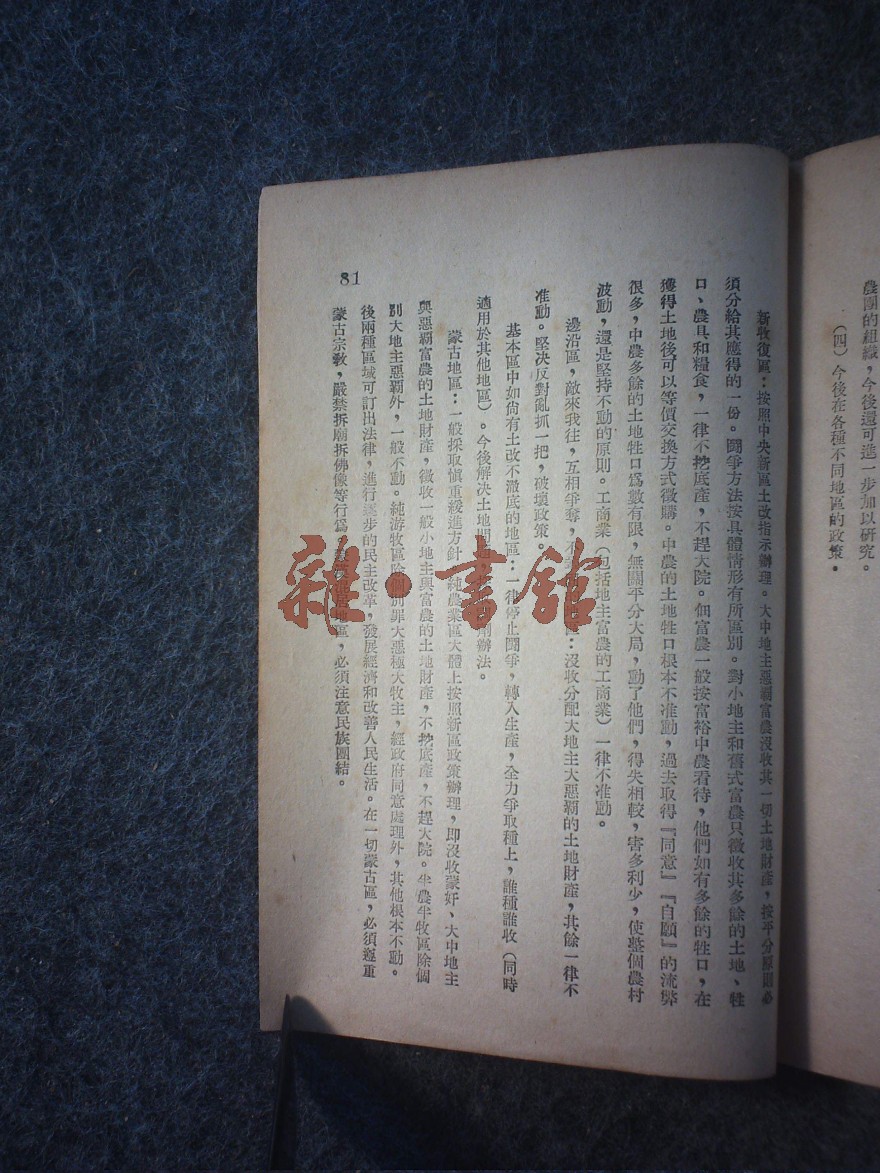 農團的組織，今後還可進一步加以研究。
（四）今後在各種不同地區的政策。
新收復區：按照中央新區土改指示辦理。大中地主惡霸富農沒收其一切土地財產，按平分原則必
須分給其應得的一份。鬪爭方法按具體情形有所區別。對小地主和舊式富農只徵收其多餘的土地、牲
口、農具和糧食，一律不挖底產，不趕大院。佃富農一般按富裕中農看待，他們如有多餘的牲口，在
獲得土地後可以等價交換方式徵購。中農的土地牲口根本不准動，過去取得『同意』『自願』的流弊
很多，中農多餘的土地牲口爲數有限，無關平分大局，動了他們，得失相較，害多利少，使整個農村
波動，還是堅持不動的原則。工商業（包括地主富農的工商業）一律不准動。
邊沿區，敵來我往，互相爭奪，不：沒收分配大地主大惡霸的土地財產，其餘一律不
准動。堅決反對亂抓一把，破壞政策。
基本區中如尚有土改不澈底的地區：一律停止鬪爭，轉入生產，全力爭取種上，誰種誰收（同時
適用於其他地區）。今後解決土地問辦法。
蒙古地區：一般採取慎重緩進方針純農業區大體上按照新區政策辦理，即沒收蒙奸、大中地主
與惡霸富農的土地財產，徵收一般小地主與富農的土地財產，不挖底產，不趕大院。半農半牧區除個
別大地主惡霸外，一般不動。純游牧區除個別罪大惡極大牧主，經政府同意處理外，其他根本不動。
後兩種區域可訂出法律，進行逐步的民主改革，發展經濟和改善人民生活。在一切蒙古區，必須尊重
蒙古宗教，嚴禁拆廟拆佛像等行爲地區，必須注意民族團結。
81
雜·書館